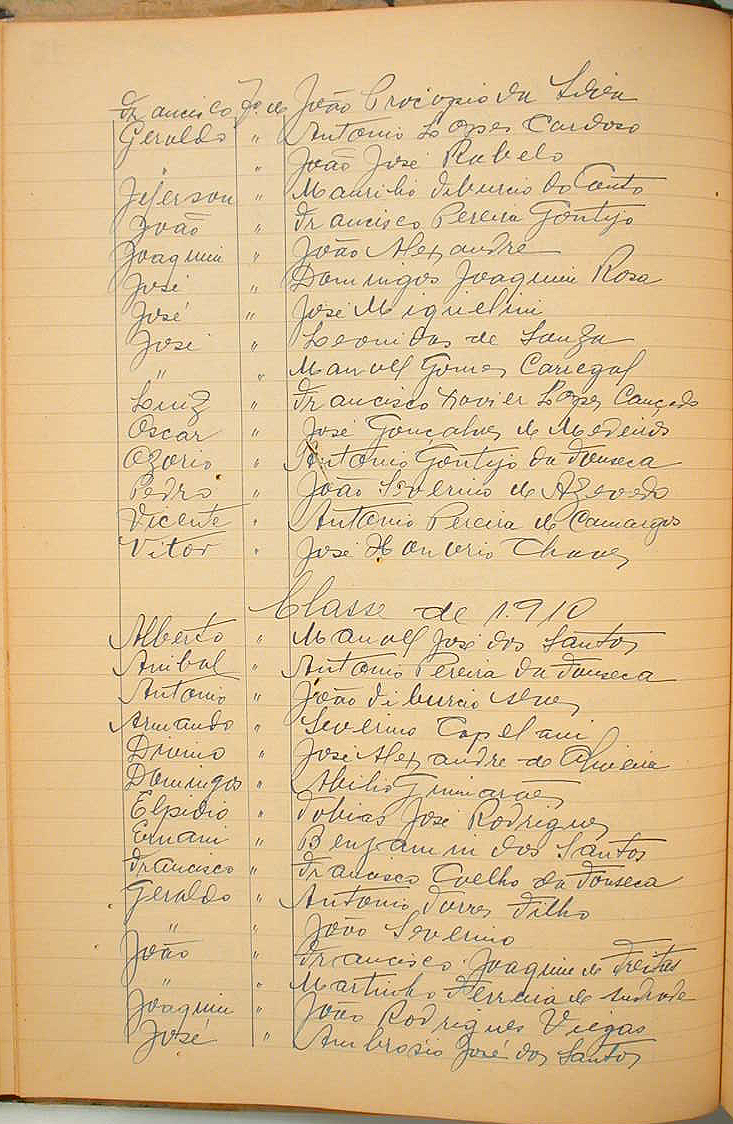 Francisco fo. de João Procopio da Silva
Geraldo " Antonio Lopes Cardoso
" " João José Rabelo
Jeferson " Maurilio Tiburcio do Couto
João " Francisco Pereira Gontijo
Joaquim " João Alexandre
José " Domingos Joaquim Rosa
José " José Miguelini
José " Leonidas de Souza
" " Manoel Gomes
Luiz " Francisco Xavier Lopes Cançado
Oscar " José Gonçalves de Medeiros
Ozorio " Antonio Gontijo da Fonseca
Pedro " João Severino de Azevedo
Vicente " Antonio Pereira de Camargos
Vitor " José Honorio Chaves
Classe de 1.910
Alberto " Manoel José dos Santos
Anibal " Antonio Pereira da Fonseca
Antonio " João Tiburcio
Armando " Severino Capelani
Divino " José Alexandre de Oliveira
Domingos " Abilio Guimarães
Elpidio " Tobias José Rodrigues
Ernani " Benjamin dos Santos
Francisco " Francisco Coelho da Fonseca
Geraldo " Antonio Torres Filho
" " João Severino
João " Francisco Joaquim de Freitas
" " Martinho Ferreira de Andrade
Joaquim " João Rodrigues Viegas
José " Ambrosio José dos Santos